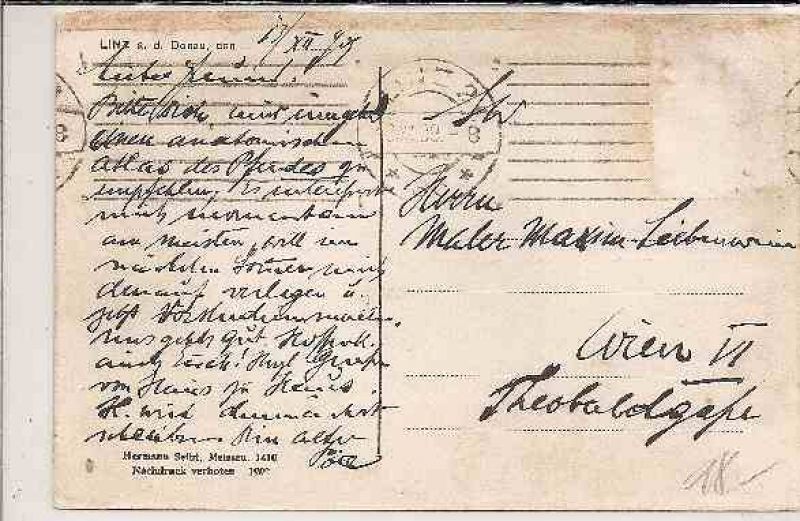 LINZ a. d. Donau, den 17/XII 909
Lieber Freund!
Bitte Dich, mir umgehd
einen anatomischen
Atlas des Pferdes zu
empfehlen. Es interessirt
mich momentan
am meisten, will im
nächsten Sommer mich
darauf verlegen u.
jetzt Vorstudien machen.
uns gehts gut hoffentl.
auch Euch! Hzl Grüße
von Haus zu Haus.
H. wird demnächst
schreiben. Dein alter
Hermann Seibt, Meissen. 1410
Nachdruck verboten 190
LINZ
8
8
Herrn
Maler Maxim. Liebenwein
Wien VI
Theobaldgasse
18.-